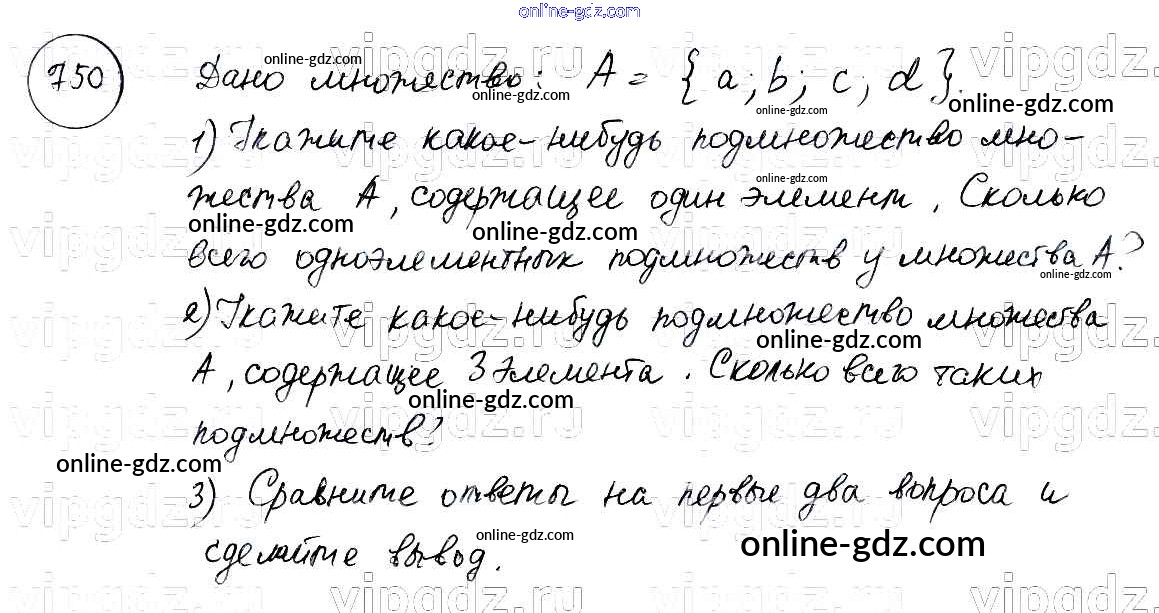 online-gdz.com
750 Дано множество: A = {a; b; c; d}.
online-gdz.com
online-gdz.com
online-gdz.com
online-gdz.com
1) Укажите какое-нибудь подмножество мно-
online-gdz.com
жества A, содержащее один элемент. Сколько
online-gdz.com
online-gdz.com
всего одноэлементных подмножеств у множества A?
online-gdz.com
2) Укажите какое-нибудь подмножество множества
online-gdz.com
A, содержащее 3 элемента. Сколько всего таких
online-gdz.com
подмножеств?
online-gdz.com
3) Сравните ответы на первые два вопроса и
online-gdz.com
online-gdz.com
сделайте вывод.
vipgdz.ru